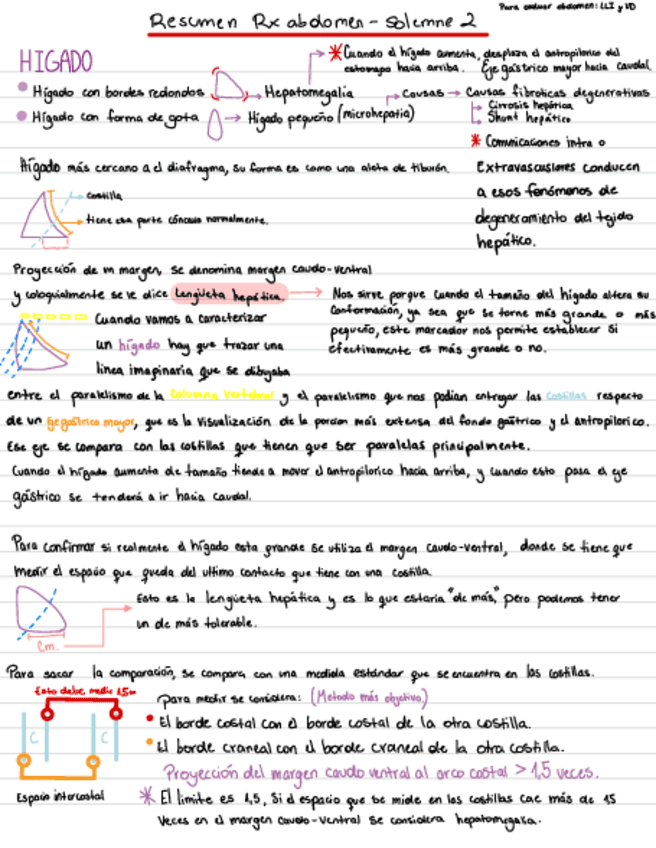 Para evaluar abdomen: LLI y VD
Resumen Rx abdomen - Solemne 2
HIGADO
Hígado con bordes redondos → Hepatomegalia
* Cuando el hígado aumenta, desplaza el antropilorico del
estomago hacia arriba. Eje gástrico mayor hacia caudal.
Hígado con forma de gota → Hígado pequeño (microhepatia)
Causas → Causas fibroticas degenerativas
Cirrosis hepática
Shunt hepático
* Comunicaciones intra o
Extravasculares conducen
a esos fenómenos de
degeneramiento del tejido
hepático.
Hígado más cercano a el diafragma, su forma es como una aleta de tiburón.
Costilla
tiene esa parte cóncava normalmente.
Proyección de un margen, se denomina margen caudo-ventral
y coloquialmente se le dice lengüeta hepática. → Nos sirve porque cuando el tamaño del hígado altera su
conformación, ya sea que se torne más grande o más
pequeño, este marcador nos permite establecer si
efectivamente es más grande o no.
Cuando vamos a caracterizar
un hígado hay que trazar una
linea imaginaria que se dibujaba
entre el paralelismo de la columna vertebral y el paralelismo que nos podian entregar las costillas respecto
de un eje gastrico mayor, que es la visualización de la porcion más extensa del fondo gástrico y el antropilorico.
Ese eje se compara con las costillas que tienen que ser paralelas principalmente.
Cuando el hígado aumenta de tamaño tiende a mover el antropilorico hacia arriba, y cuando esto pasa el eje
gástrico se tenderá a ir hacia caudal.
Para confirmar si realmente el hígado esta grande se utiliza el margen caudo-ventral, donde se tiene que
medir el espacio que queda del ultimo contacto que tiene con una costilla.
Esto es la lengüeta hepática y es lo que estaria "de más", pero podemos tener
un de más tolerable.
Cm.
Para sacar la comparación, se compara con una medida estándar que se encuentra en las costillas.
Esto debe medir 1,5
para medir se considera: (Metodo más objetivo)
El borde costal con el borde costal de la otra costilla.
C C
El borde craneal con el borde craneal de la otra costilla.
Proyección del margen caudo ventral al arco costal > 1,5 veces.
Espacio intercostal
* El limite es 1,5, Si el espacio que se mide en las costillas cae más de 1,5
veces en el margen caudo-ventral se considera hepatomegalia.